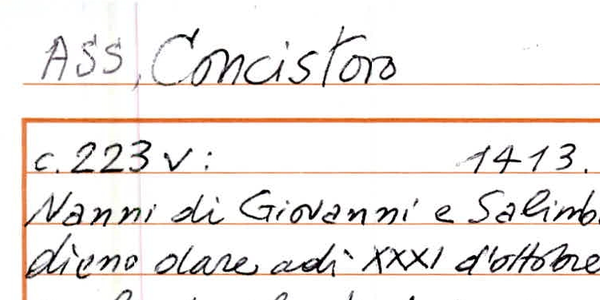 ASS, Concistoro
c. 223 v: 1413.
Nanni di Giovanni e Salimb
dieno dare adì XXXI d'ottobre